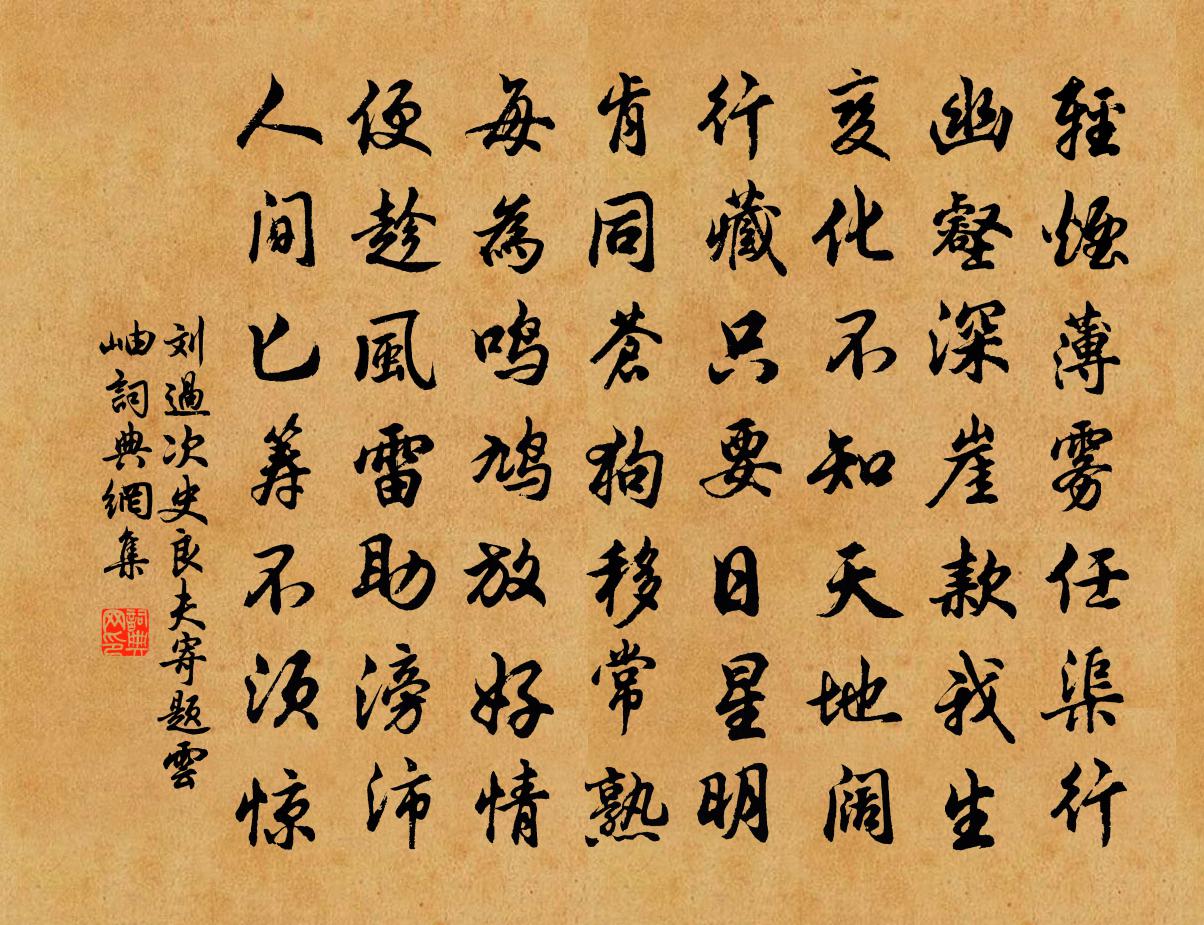 輕煙薄雾任渠行
幽壑深崖款我生
变化不知天地阔
行藏只要日星明
肯同蒼狗移常熟
每為鸣鸠放好情
便趁風雷助滂沛
人间已筹不须惊
刘過次史良夫寄题雲
岫詞典網集
詞典网印